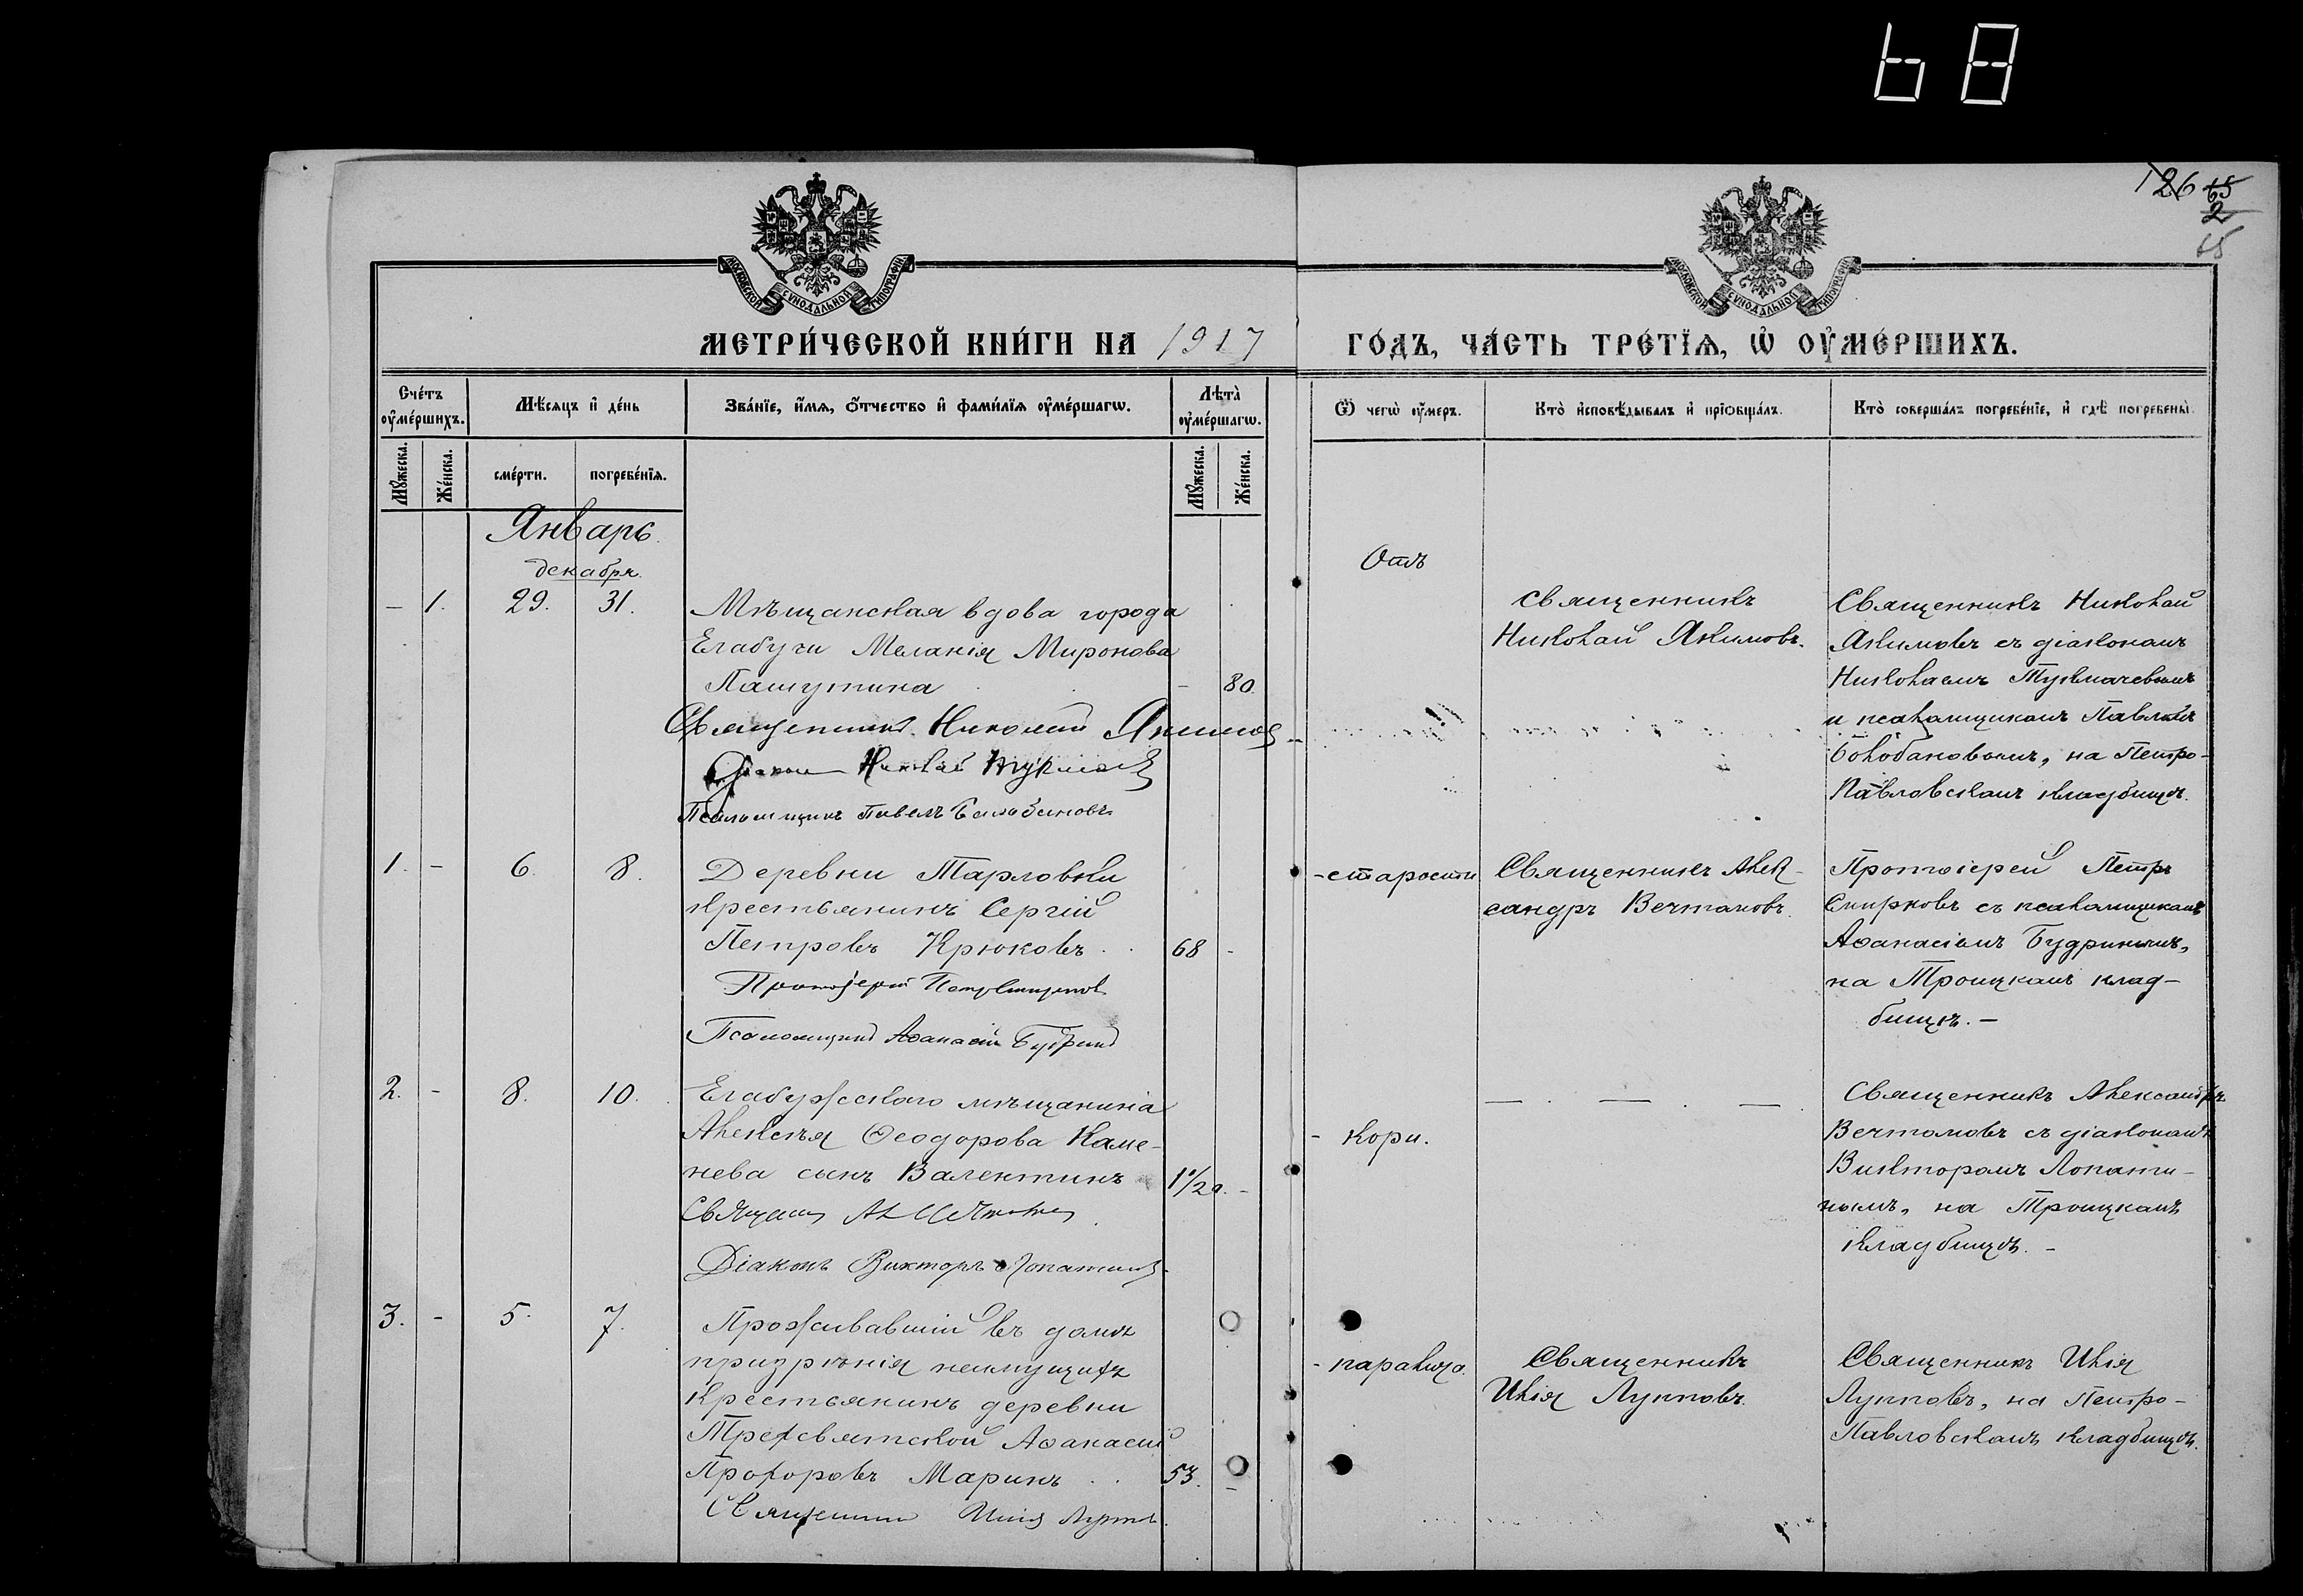 68
126 65
2
65
МОСКОВСКОЙ СУНОДАЛЬНОЙ ТИПОГРАФІИ
МОСКОВСКОЙ СУНОДАЛЬНОЙ ТИПОГРАФІИ
МЕТРИ́ЧЕСКОЙ КНИ́ГИ НА 1917 ГО́ДЪ, ЧА́СТЬ ТРЕ́ТЇѦ, Ѡ҆ ОУ҆МЕ́РШИХЪ.
Сче́тъ оу҆ме́ршихъ.
Мѣ́сяцъ и҆ де́нь
Зва́нїе, и҆́мѧ, ѻ҆́тчество и҆ фами́лїѧ оу҆ме́ршагѡ.
Лѣ́та оу҆ме́ршагѡ.
Ѿ чегѡ̀ оу҆́меръ.
Кто̀ и҆сповѣ́дывалъ и҆ прїѡбща́лъ.
Кто̀ соверша́лъ погребе́нїе, и҆ гдѣ̀ погребены̀.
Мꙋ́жеска.
Же́нска.
сме́рти.
погребе́нїѧ.
Мꙋ́жеска.
Же́нска.
Январь.
декабря.
Отъ
– 1. 29. 31.
Мѣщанская вдова города
Елабуги Меланія Миронова
Пашутина – 80.
Священникъ Николай Якимовъ
Діаконъ Николай Тукмачевъ
Псаломщикъ Павелъ Болобановъ
священникъ
Николай Якимовъ.
Священникъ Николай
Якимовъ съ діакономъ
Николаемъ Тукмачевымъ
и псаломщикомъ Павломъ
Болобановымъ, на Петро-
Павловскомъ кладбищѣ.
1. – 6. 8.
Деревни Тарловки
крестьянинъ Сергій
Петровъ Крюковъ . . 68 -
Протоіерей Петръ Смирновъ
Псаломщикъ Аѳанасій Будринъ
- старости
Священникъ Алек-
сандръ Вечтомовъ.
Протоіерей Петръ
Смирновъ съ псаломщикомъ
Аѳанасіемъ Будринымъ,
на Троицкомъ клад-
бищѣ. –
2. - 8. 10.
Елабужскаго мѣщанина
Алексѣя Ѳеодорова Каме-
нева сынъ Валентинъ 1 1/2 г. -
Діаконъ Викторъ Лопатинъ
- кори.
— . — . — .
Священникъ Александръ
Вечтомовъ съ діакономъ
Викторомъ Лопати-
нымъ, на Троицкомъ
кладбищѣ. -
3. - 5. 7.
Проживавшій въ домѣ
призрѣнія неимущихъ
крестьянинъ деревни
Трехсвятской Аѳанасій
Прохоровъ Маринъ . . 53. -
Священникъ Илія Лупповъ.
- паралича.
Священникъ
Илія Лупповъ.
Священникъ Илія
Лупповъ, на Петро-
Павловскомъ кладбищѣ.